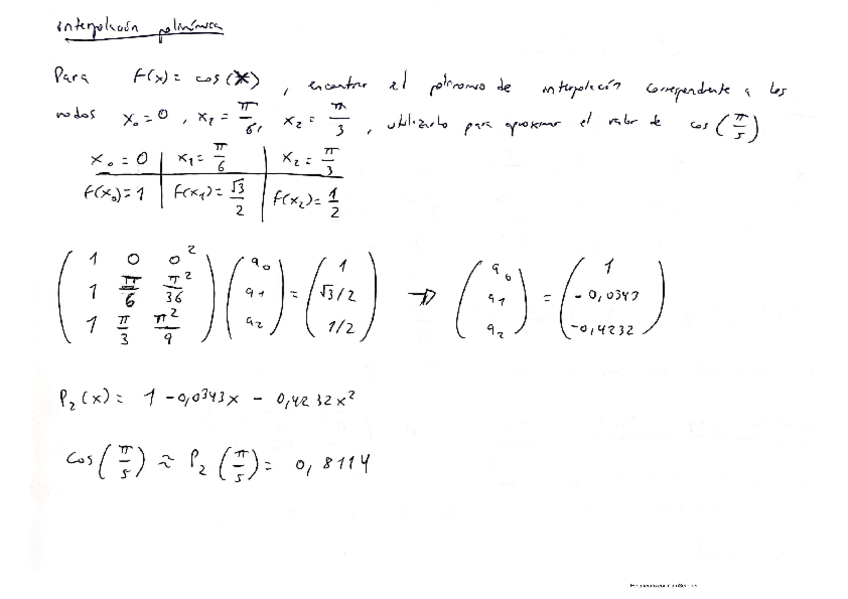 interpolación polinómica
Para f(x) = cos(x), encontrar el polinomio de interpolación correspondiente a los
nodos x₀ = 0, x₂ = π/6, x₂ = π/3, utilizarlo para aproximar el valor de cos(π/5)
x₀ = 0 | x₁ = π/6 | x₂ = π/3
f(x₀) = 1 | f(x₁) = √3/2 | f(x₂) = 1/2
(1 0 0²; 1 π/6 π²/36; 1 π/3 π²/9) (a₀; a₁; a₂) = (1; √3/2; 1/2) → (a₀; a₁; a₂) = (1; -0,0343; -0,4232)
P₂(x) = 1 - 0,0343x - 0,4232x²
cos(π/5) ≈ P₂(π/5) = 0,8114